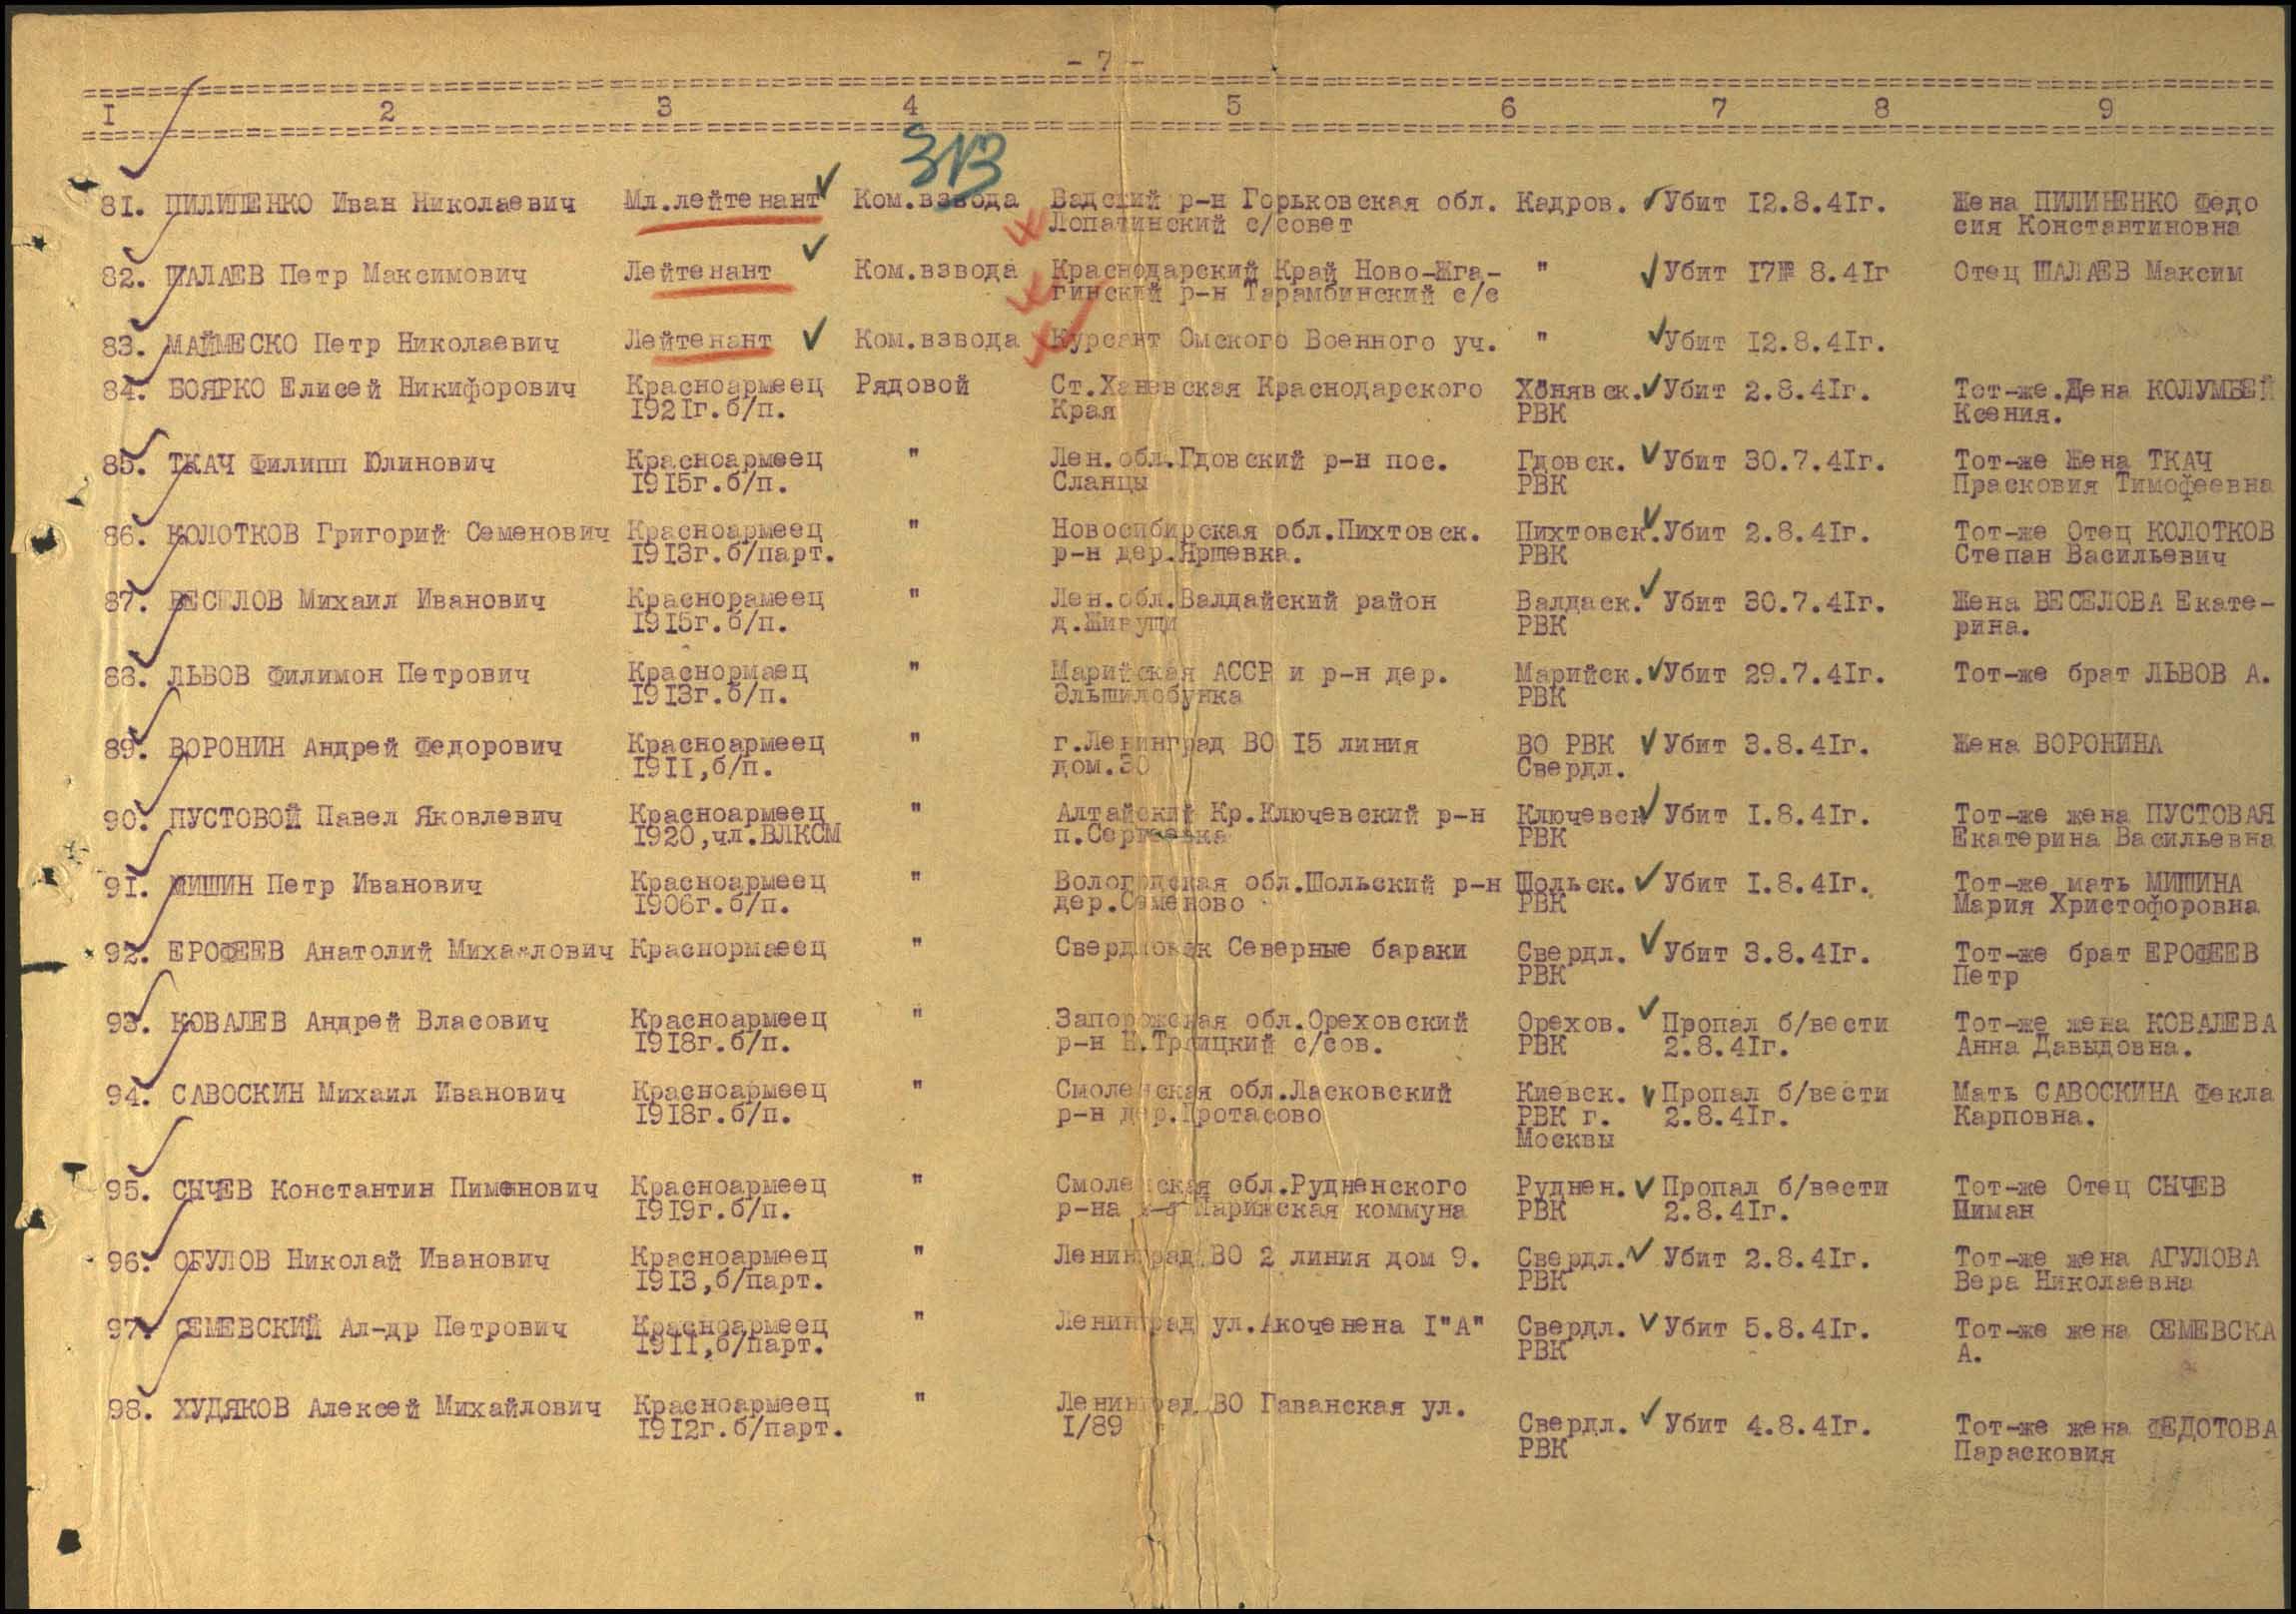 - 7 -
I 2 3 4 5 6 7 8 9
313
81. ПИЛИПЕНКО Иван Николаевич Мл.лейтенант Ком.взвода Вадский р-н Горьковская обл. Кадров. Убит I2.8.4Iг. Жена ПИЛИПЕНКО Федо
Лопатинский с/совет сия Константиновна
82. ШАЛАЕВ Петр Максимович Лейтенант Ком.взвода Краснодарский Край Ново-Жга- " Убит I7 8.4Iг Отец ШАЛАЕВ Максим
гинский р-н Тарамбинский с/с
83. МАЙМЕСКО Петр Николаевич Лейтенант Ком.взвода Курсант Омского Военного уч. " Убит I2.8.4Iг.
84. БОЯРКО Елисей Никифорович Красноармеец Рядовой Ст.Каневская Краснодарского Хонявск. Убит 2.8.4Iг. Тот-же.Жена КОЛУМБЕЙ
I92Iг.б/п. Края РВК Ксения.
85. ТКАЧ Филипп Юлинович Красноармеец " Лен.обл.Гдовский р-н пос. Гдовск. Убит 30.7.4Iг. Тот-же Жена ТКАЧ
I9I5г.б/п. Сланцы РВК Прасковия Тимофеевна
86. КОЛОТКОВ Григорий Семенович Красноармеец " Новосибирская обл.Пихтовск. Пихтовск. Убит 2.8.4Iг. Тот-же Отец КОЛОТКОВ
I9I3г.б/парт. р-н дер.Яршевка. РВК Степан Васильевич
87. ВЕСЕЛОВ Михаил Иванович Краснорамеец " Лен.обл.Валдайский район Валдаск. Убит 30.7.4Iг. Жена ВЕСЕЛОВА Екате-
I9I5г.б/п. д.Живущи РВК рина.
88. ЛЬВОВ Филимон Петрович Краснормаец " Марийская АССР и р-н дер. Марийск. Убит 29.7.4Iг. Тот-же брат ЛЬВОВ А.
I9I3г.б/п. Эльшилобунка РВК
89. ВОРОНИН Андрей Федорович Красноармеец " г.Ленинград ВО I5 линия ВО РВК Убит 3.8.4Iг. Жена ВОРОНИНА
I9II,б/п. дом.30 Свердл.
90. ПУСТОВОЙ Павел Яковлевич Красноармеец " Алтайский Кр.Ключевский р-н Ключевск Убит I.8.4Iг. Тот-же жена ПУСТОВАЯ
I920,чл.ВЛКСМ п.Сергеевка РВК Екатерина Васильевна
91. МИШИН Петр Иванович Красноармеец " Вологодская обл.Шольский р-н Шольск. Убит I.8.4Iг. Тот-же мать МИШИНА
I906г.б/п. дер.Семеново РВК Мария Христофоровна
92. ЕРОФЕЕВ Анатолий Михайлович Краснормаеец " Свердловск Северные бараки Свердл. Убит 3.8.4Iг. Тот-же брат ЕРОФЕЕВ
РВК Петр
93. КОВАЛЕВ Андрей Власович Красноармеец " Запорожская обл.Ореховский Орехов. Пропал б/вести Тот-же жена КОВАЛЕВА
I9I8г.б/п. р-н Н.Троицкий с/сов. РВК 2.8.4Iг. Анна Давыдовна.
94. САВОСКИН Михаил Иванович Красноармеец " Смоленская обл.Ласковский Киевск. Пропал б/вести Мать САВОСКИНА Фекла
I9I8г.б/п. р-н дер.Протасово РВК г. 2.8.4Iг. Карповна.
Москвы
95. СЫЧЕВ Константин Пименнович Красноармеец " Смоленская обл.Рудненского Руднен. Пропал б/вести Тот-же Отец СЫЧЕВ
I9I9г.б/п. р-на Парижская коммуна РВК 2.8.4Iг. Пиман
96. ОБУЛОВ Николай Иванович Красноармеец " Ленинград ВО 2 линия дом 9. Свердл. Убит 2.8.4Iг. Тот-же жена АГУЛОВА
I9I3,б/парт. РВК Вера Николаевна
97. СЕМЕВСКИЙ Ал-др Петрович Красноармеец " Ленинград ул.Акоченена I"А" Свердл. Убит 5.8.4Iг. Тот-же жена СЕМЕВСКА
I9II,б/парт. РВК А.
98. ХУДЯКОВ Алексей Михайлович Красноармеец " Ленинград ВО Гаванская ул.
I9I2г.б/парт. I/89 Свердл. Убит 4.8.4Iг. Тот-же жена ФЕДОТОВА
РВК Парасковия